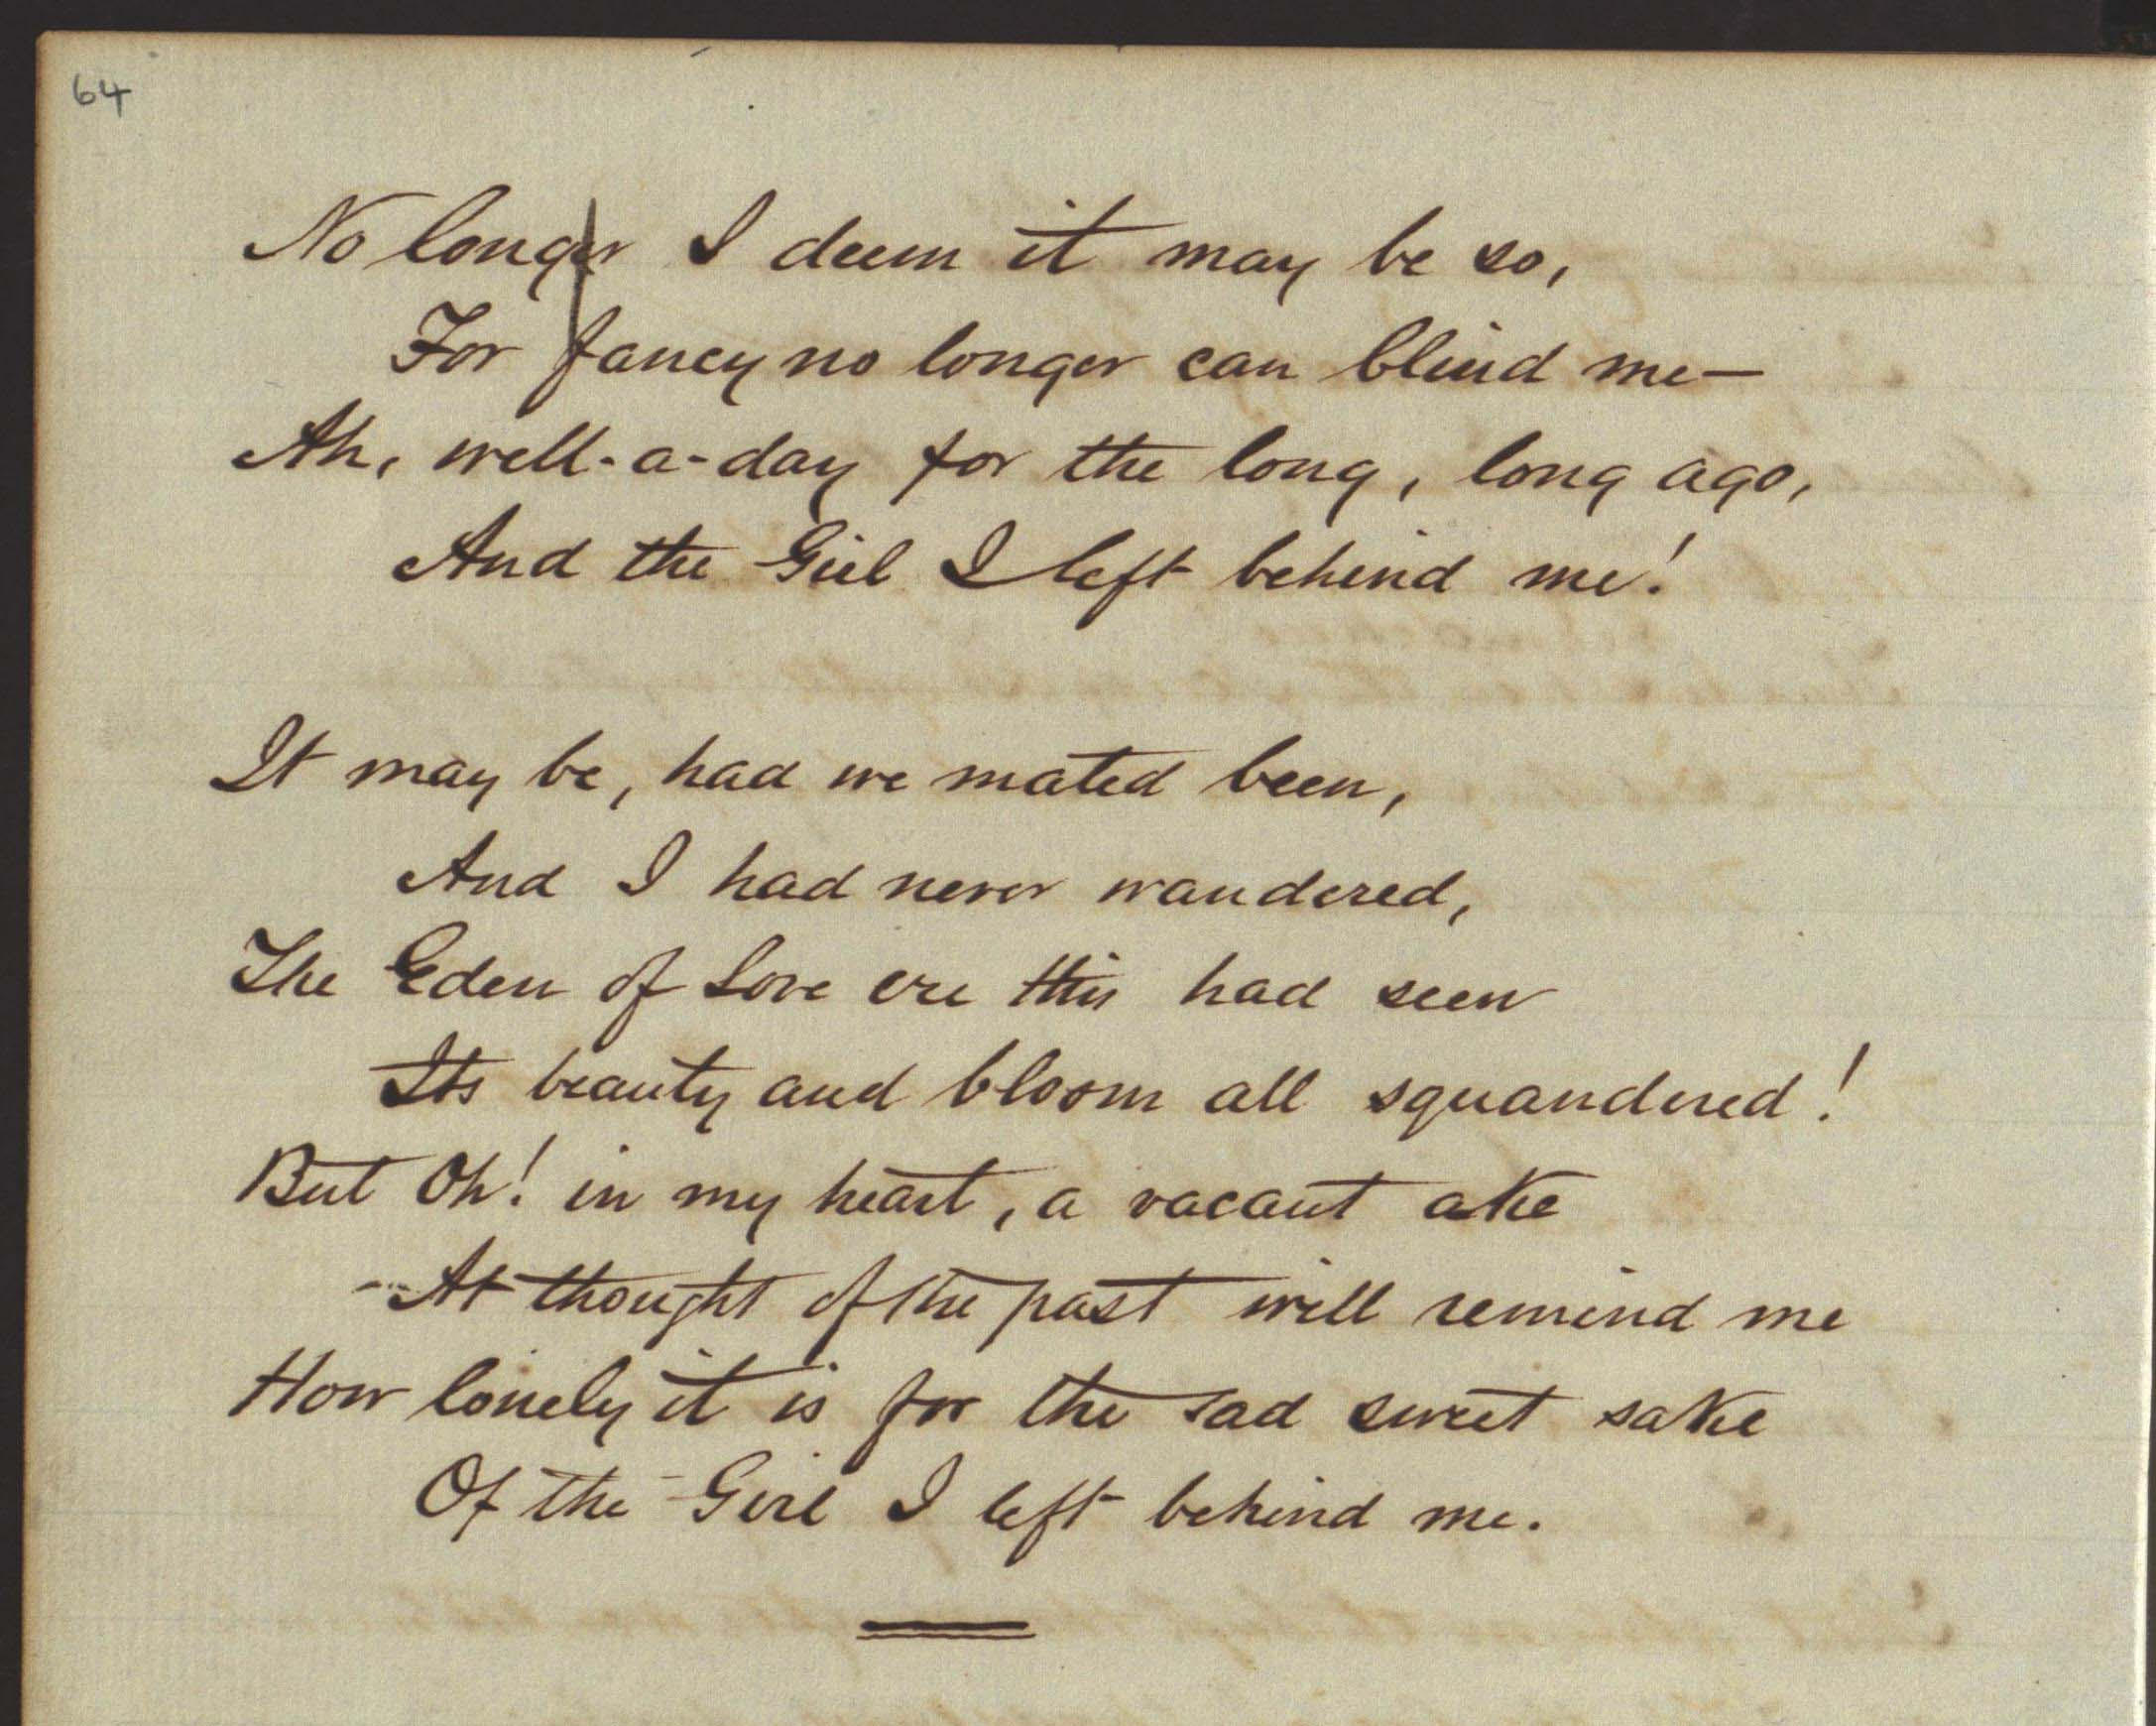 64
No longer I deem it may be so,
For fancy no longer can blind me—
Ah, well-a-day for the long, long ago,
And the Girl I left behind me!
It may be, had we mated been,
And I had never wandered,
The Eden of Love ere this had seen
Its beauty and bloom all squandered!
But Oh! in my heart, a vacant ake
At thought of the past will remind me
How lonely it is for the sad sweet sake
Of the Girl I left behind me.